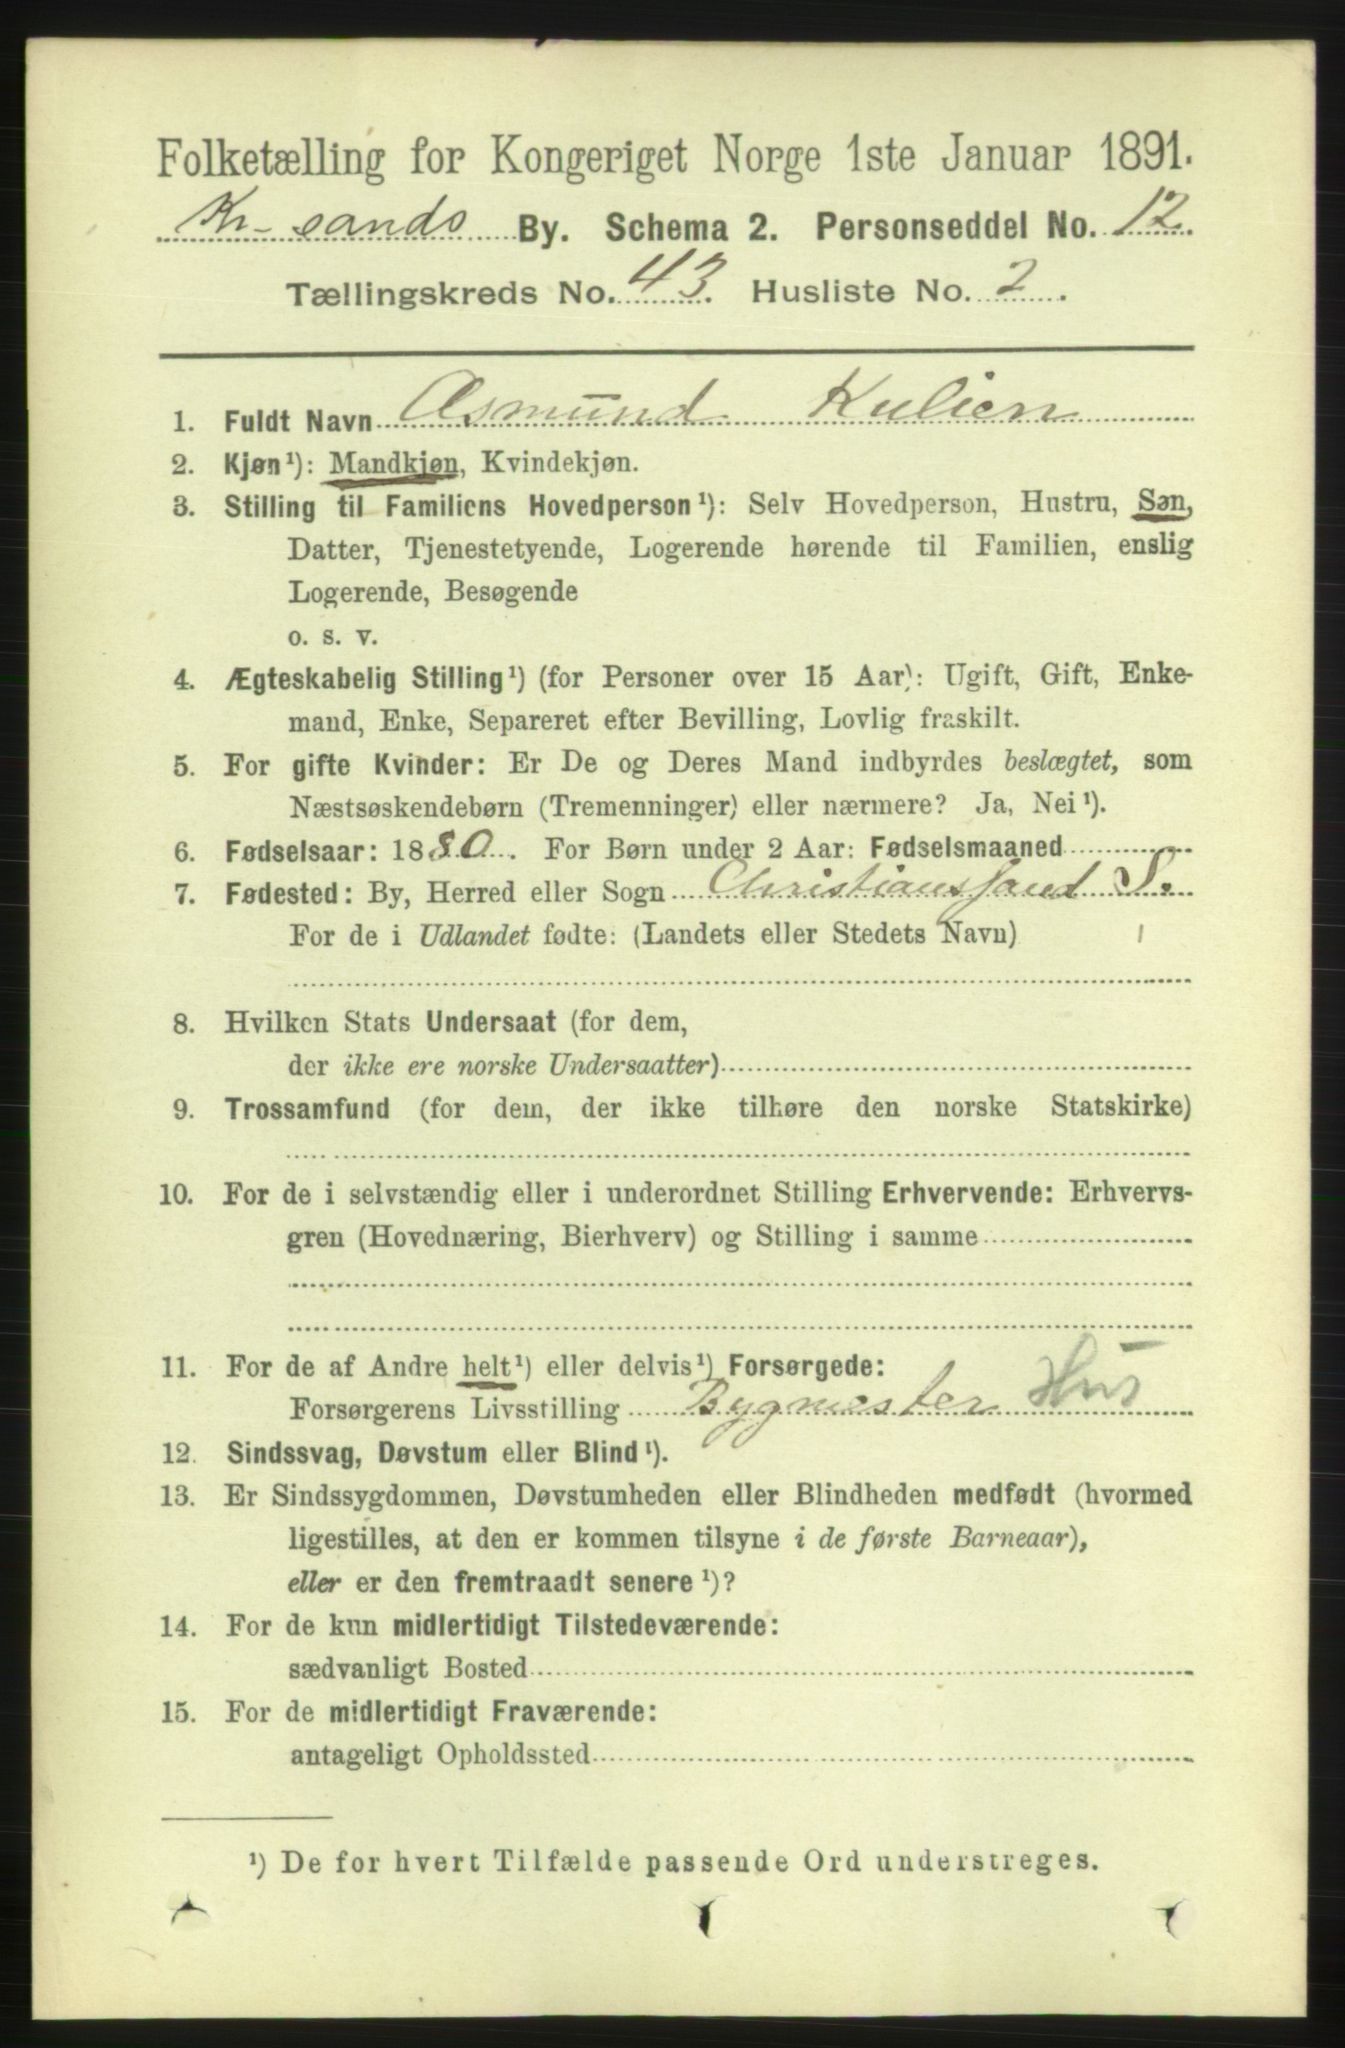 Folketælling for Kongeriget Norge 1ste Januar 1891.
Kr-sands By. Schema 2. Personseddel No. 12
Tællingskreds No. 43. Husliste No. 2.
1. Fuldt Navn Asmund Kulien
2. Kjøn¹): Mandkjøn, Kvindekjøn.
3. Stilling til Familiens Hovedperson¹): Selv Hovedperson, Hustru, Søn,
Datter, Tjenestetyende, Logerende hørende til Familien, enslig
Logerende, Besøgende
o. s. v.
4. Ægteskabelig Stilling¹) (for Personer over 15 Aar): Ugift, Gift, Enke-
mand, Enke, Separeret efter Bevilling, Lovlig fraskilt.
5. For gifte Kvinder: Er De og Deres Mand indbyrdes beslægtet, som
Næstsøskendebørn (Tremenninger) eller nærmere? Ja, Nei¹).
6. Fødselsaar: 1880. For Børn under 2 Aar: Fødselsmaaned
7. Fødested: By, Herred eller Sogn Christianssand S.
For de i Udlandet fødte: (Landets eller Stedets Navn)
8. Hvilken Stats Undersaat (for dem,
der ikke ere norske Undersaatter)
9. Trossamfund (for dem, der ikke tilhøre den norske Statskirke)
10. For de i selvstændig eller i underordnet Stilling Erhvervende: Erhvervs-
gren (Hovednæring, Bierhverv) og Stilling i samme
11. For de af Andre helt¹) eller delvis¹) Forsørgede:
Forsørgerens Livsstilling Bygmester Hus
12. Sindssvag, Døvstum eller Blind¹).
13. Er Sindssygdommen, Døvstumheden eller Blindheden medfødt (hvormed
ligestilles, at den er kommen tilsyne i de første Barneaar),
eller er den fremtraadt senere¹)?
14. For de kun midlertidigt Tilstedeværende:
sædvanligt Bosted
15. For de midlertidigt Fraværende:
antageligt Opholdssted
¹) De for hvert Tilfælde passende Ord understreges.